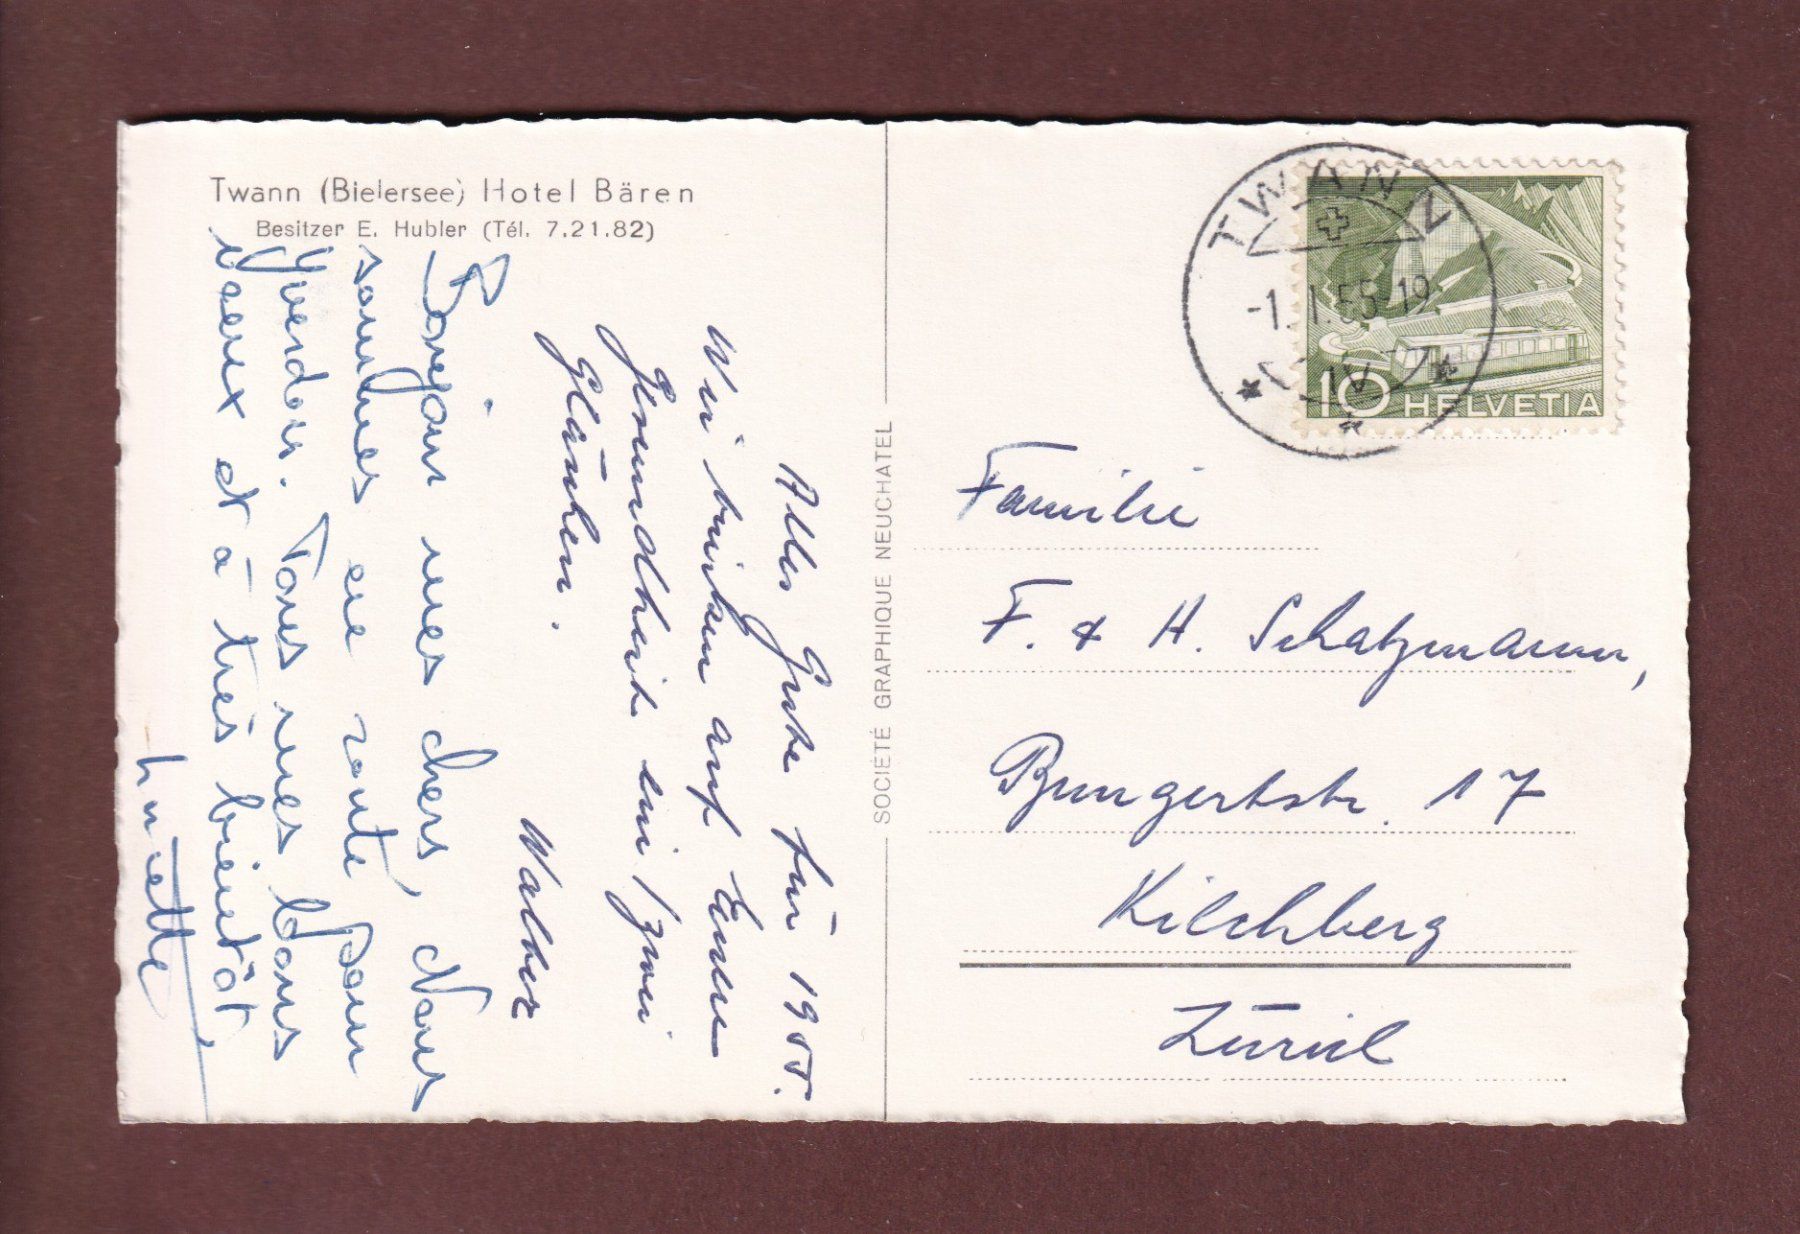 Twann (Bielersee) Hotel Bären
Besitzer E. Hubler (Tél. 7.21.82)
Alles Gute für 1955.
Wir trinken auf Eurer
Gesundheit ein / zwei
Gläschen.
Walter
Bonjour mes chers, Nous
sommes en route pour
Yverdon. Tous mes bons
vœux et à très bientôt
SOCIÉTÉ GRAPHIQUE NEUCHATEL
TWANN
-1. I. 55-19
10 HELVETIA
Familie
F. & H. Schatzmann,
Bungertstr. 17
Kilchberg
Zürich